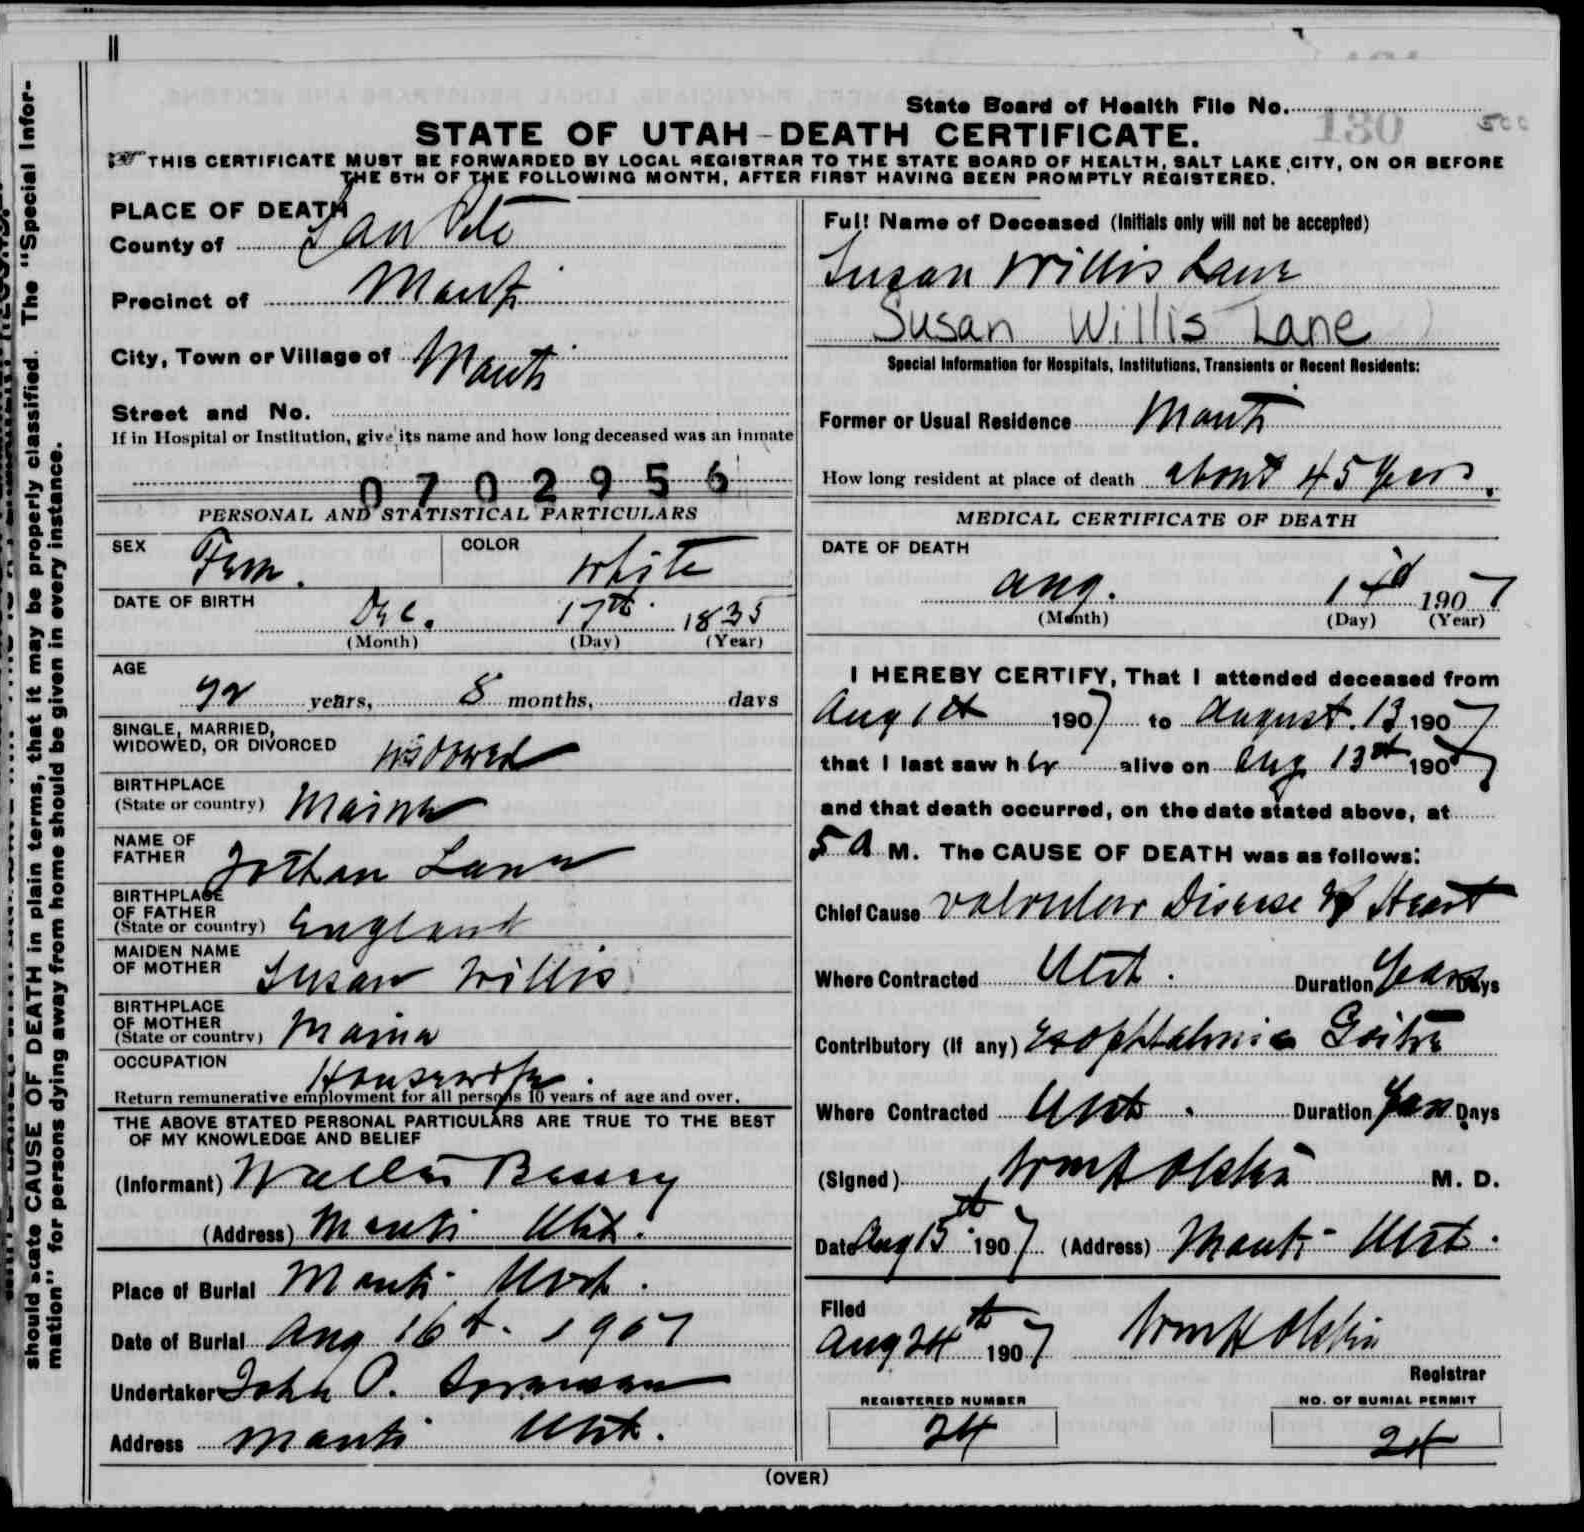 should state CAUSE OF DEATH in plain terms, that it may be properly classified. The "Special Infor-
mation" for persons dying away from home should be given in every instance.
State Board of Health File No. 130 500
STATE OF UTAH - DEATH CERTIFICATE.
THIS CERTIFICATE MUST BE FORWARDED BY LOCAL REGISTRAR TO THE STATE BOARD OF HEALTH, SALT LAKE CITY, ON OR BEFORE
THE 5TH OF THE FOLLOWING MONTH, AFTER FIRST HAVING BEEN PROMPTLY REGISTERED.
PLACE OF DEATH
County of San Pete
Precinct of Manti
City, Town or Village of Manti
Street and No.
If in Hospital or Institution, give its name and how long deceased was an inmate
0702956
PERSONAL AND STATISTICAL PARTICULARS
SEX Fem. COLOR White
DATE OF BIRTH Dec. 17th 1835
(Month) (Day) (Year)
AGE
72 years, 8 months, days
SINGLE, MARRIED,
WIDOWED, OR DIVORCED Widowed
BIRTHPLACE
(State or country) Maine
NAME OF
FATHER Jothan Lane
BIRTHPLACE
OF FATHER
(State or country) England
MAIDEN NAME
OF MOTHER Susan Willis
BIRTHPLACE
OF MOTHER
(State or country) Maine
OCCUPATION Housewife.
Return remunerative employment for all persons 10 years of age and over.
THE ABOVE STATED PERSONAL PARTICULARS ARE TRUE TO THE BEST
OF MY KNOWLEDGE AND BELIEF
(Informant) Walter Bessey
(Address) Manti Utah.
Place of Burial Manti Utah.
Date of Burial Aug 16th. 1907
Undertaker John P. Sorensen
Address Manti Utah.
Full Name of Deceased (Initials only will not be accepted)
Susan Willis Lane
Susan Willis Lane
Special Information for Hospitals, Institutions, Transients or Recent Residents:
Former or Usual Residence Manti
How long resident at place of death about 45 years.
MEDICAL CERTIFICATE OF DEATH
DATE OF DEATH
Aug. 14 1907
(Month) (Day) (Year)
I HEREBY CERTIFY, That I attended deceased from
Aug 1st 1907 to August. 13 1907
that I last saw her alive on Aug 13th 1907
and that death occurred, on the date stated above, at
5 A M. The CAUSE OF DEATH was as follows:
Chief Cause Valvular Disease of Heart
Where Contracted Utah. Duration Years Days
Contributory (if any) Exophtalmic Goitre
Where Contracted Utah. Duration Years Days
(Signed) M. D.
Date Aug 15th 1907 (Address) Manti Utah.
Filed
Aug 24th 1907
Registrar
REGISTERED NUMBER
24
NO. OF BURIAL PERMIT
24
(OVER)